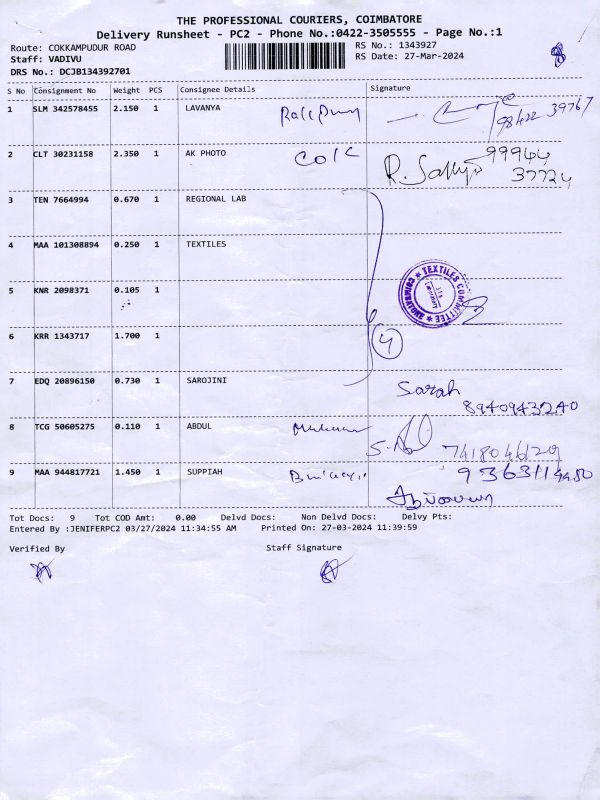 THE PROFESSIONAL COURIERS, COIMBATORE
Delivery Runsheet - PC2 - Phone No.:0422-3505555 - Page No.:1
Route: COKKAMPUDUR ROAD
RS No.: 1343927
Staff: VADIVU
RS Date: 27-Mar-2024
DRS No.: DCJB134392701
S No Consignment No Weight PCS Consignee Details Signature
1 SLM 342578455 2.150 1 LAVANYA
98422 39767
2 CLT 30231158 2.350 1 AK PHOTO
99944
37724
3 TEN 7664994 0.670 1 REGIONAL LAB
4 MAA 101308894 0.250 1 TEXTILES
TEXTILES COMMITTEE
COIMBATORE
5 KNR 2098371 0.105 1
6 KRR 1343717 1.700 1
4
7 EDQ 20896150 0.730 1 SAROJINI
Sarah
8940943240
8 TCG 50605275 0.110 1 ABDUL
9 MAA 944817721 1.450 1 SUPPIAH
Tot Docs: 9 Tot COD Amt: 0.00 Delvd Docs: Non Delvd Docs: Delvy Pts:
Entered By :JENIFERPC2 03/27/2024 11:34:55 AM Printed On: 27-03-2024 11:39:59
Verified By Staff Signature